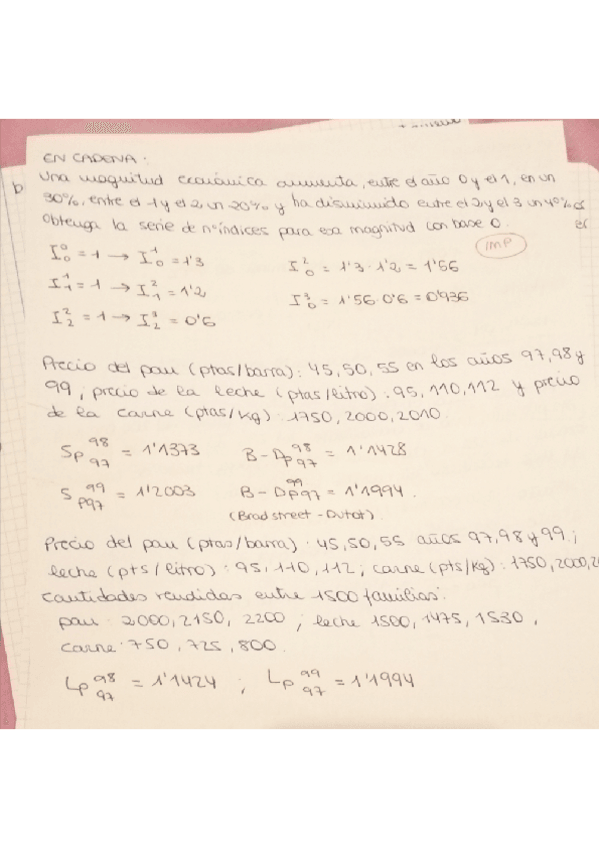 EN CADENA:
Una magnitud económica aumenta, entre el año 0 y el 1, en un
30%, entre el 1 y el 2, un 20% y ha disminuido entre el 2 y el 3 un 40%
Obtenga la serie de nºíndices para esa magnitud con base 0.
IMP
I₀⁰ = 1 → I₀¹ = 1'3
I₀² = 1'3 · 1'2 = 1'56
I₁¹ = 1 → I₁² = 1'2
I₀³ = 1'56 · 0'6 = 0'936
I₂² = 1 → I₂³ = 0'6
Precio del pan (ptas/barra): 45, 50, 55 en los años 97, 98 y
99; precio de la leche (ptas/litro): 95, 110, 112 y precio
de la carne (ptas/kg): 1750, 2000, 2010.
Sp 98 97 = 1'1373
B-Dp 98 97 = 1'1428
Sp 99 97 = 1'2003
B-Dp 99 97 = 1'1994.
(Bradstreet-Dutot)
Precio del pan (ptas/barra): 45, 50, 55 años 97, 98 y 99;
leche (pts/litro): 95, 110, 112; carne (pts/kg): 1750, 2000, 2
cantidades vendidas entre 1500 familias:
pan: 2000, 2150, 2200; leche 1500, 1475, 1530,
carne: 750, 725, 800.
Lp 98 97 = 1'1424 ; Lp 99 97 = 1'1994